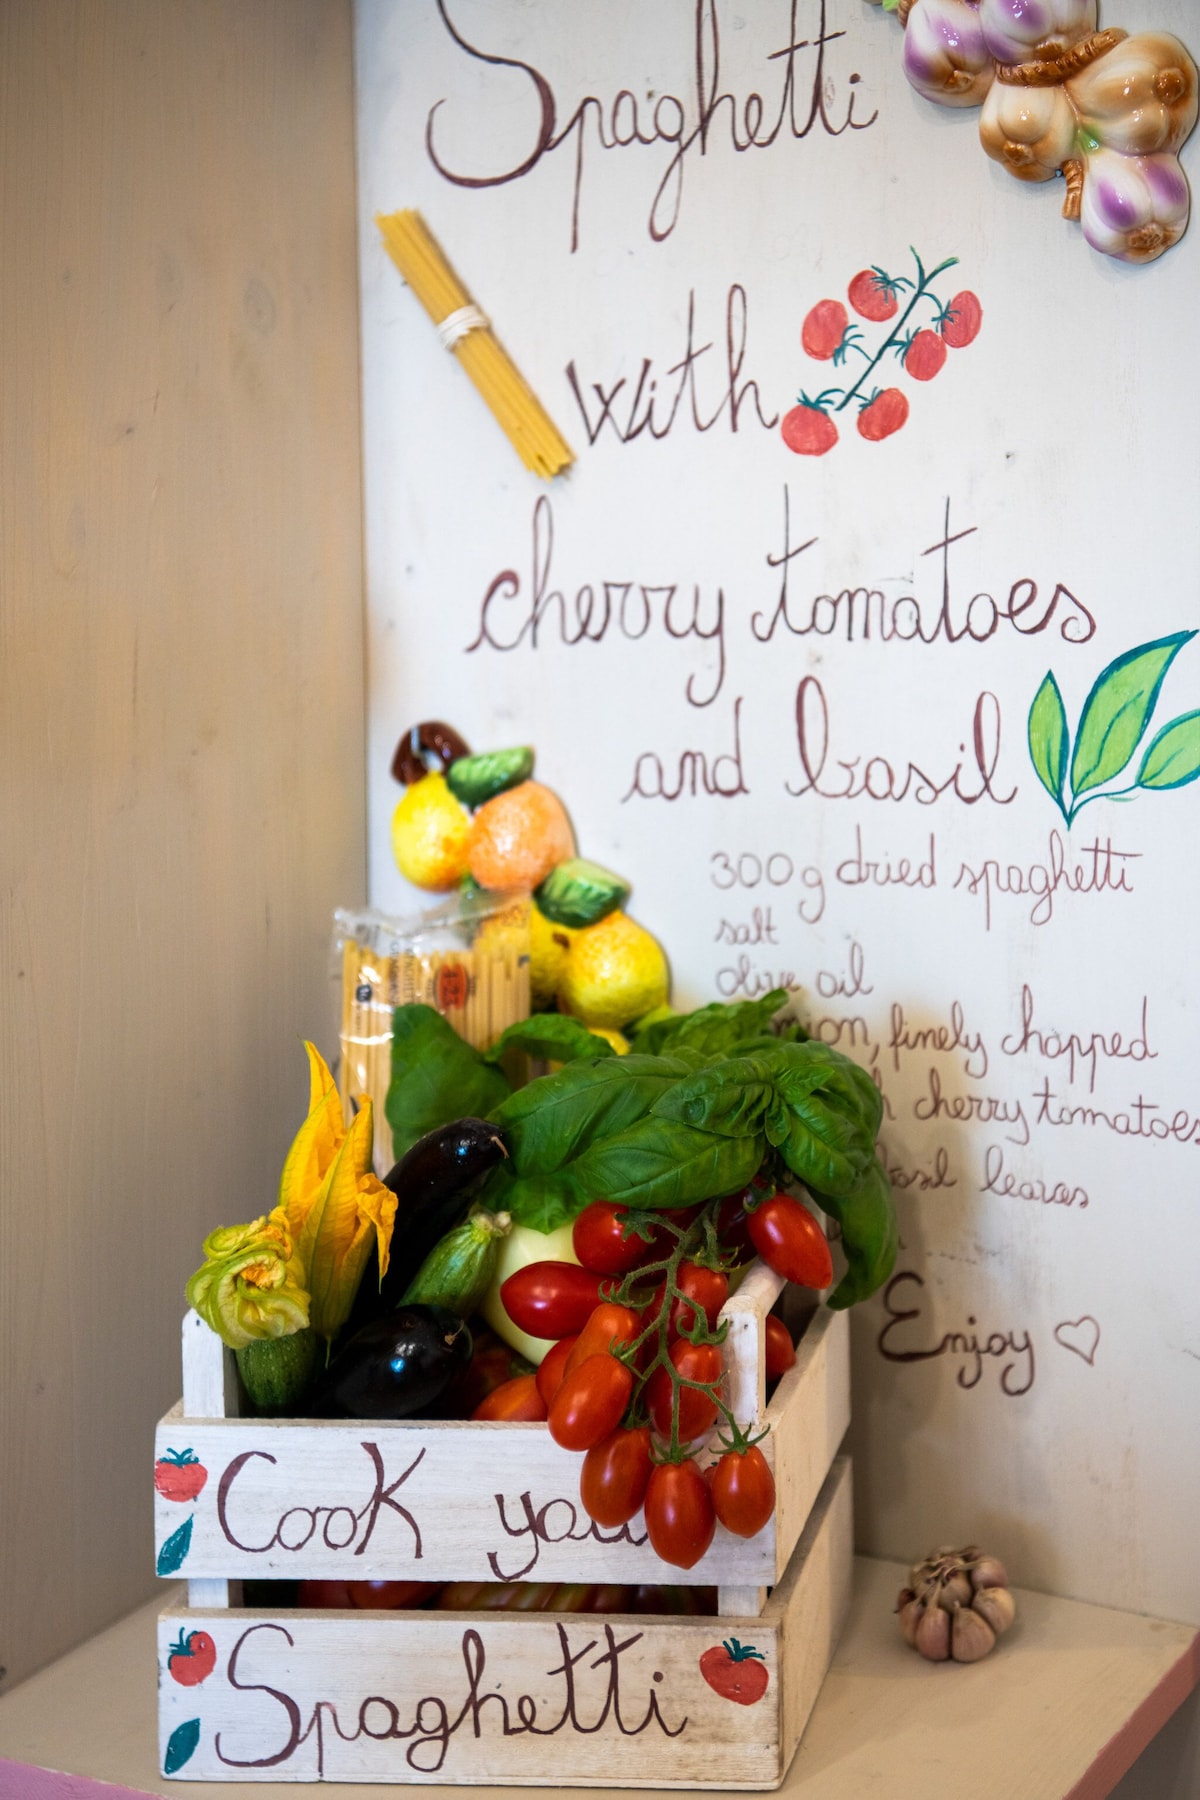 Spaghetti
with
cherry tomatoes
and basil
300g dried spaghetti
salt
olive oil
onion, finely chopped
cherry tomatoes
basil leaves
Enjoy
Cook you
Spaghetti